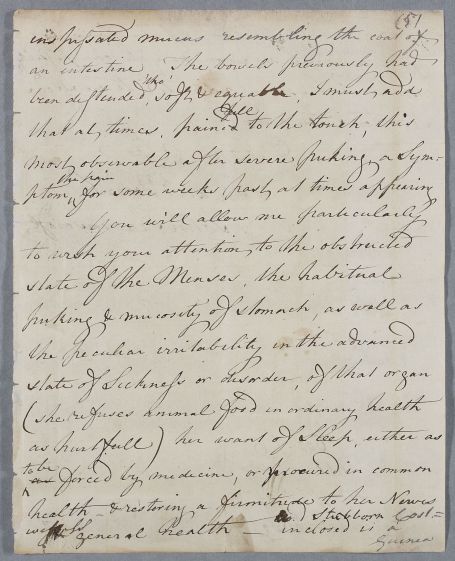 (5)
inspissated mucus resembling the coat of
an intestine. The bowels previously had
been distended, tho' soft & equable, I must add
that at times, pained still to the touch, this
most observable after severe puking, a Sym-
ptom, the pain for some weeks past, at times appearing
You will allow me particularly
to wish your attention, to the obstructed
state of the Menses, the habitual
puking & mucosity of stomach, as well as
the Peculiar irritability in the advanced
state of Sickness or disorder, of that organ
(she refuses animal food in ordinary health
as hurtfull) her want of Sleep, either as
to be forced by medicine, or procured in common
health — & restoring a firmitude to her Nerves
general health — Stubborn Cost=
inclosed is a
Guinea